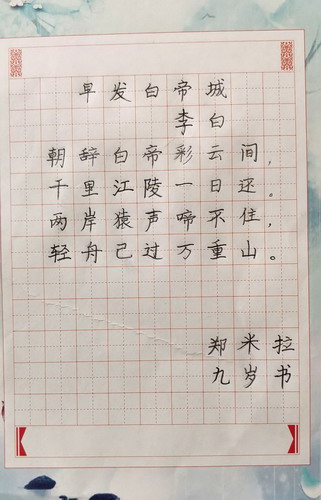 早发白帝城
李白
朝辞白帝彩云间，
千里江陵一日还。
两岸猿声啼不住，
轻舟己过万重山。
郑米拉
九岁书